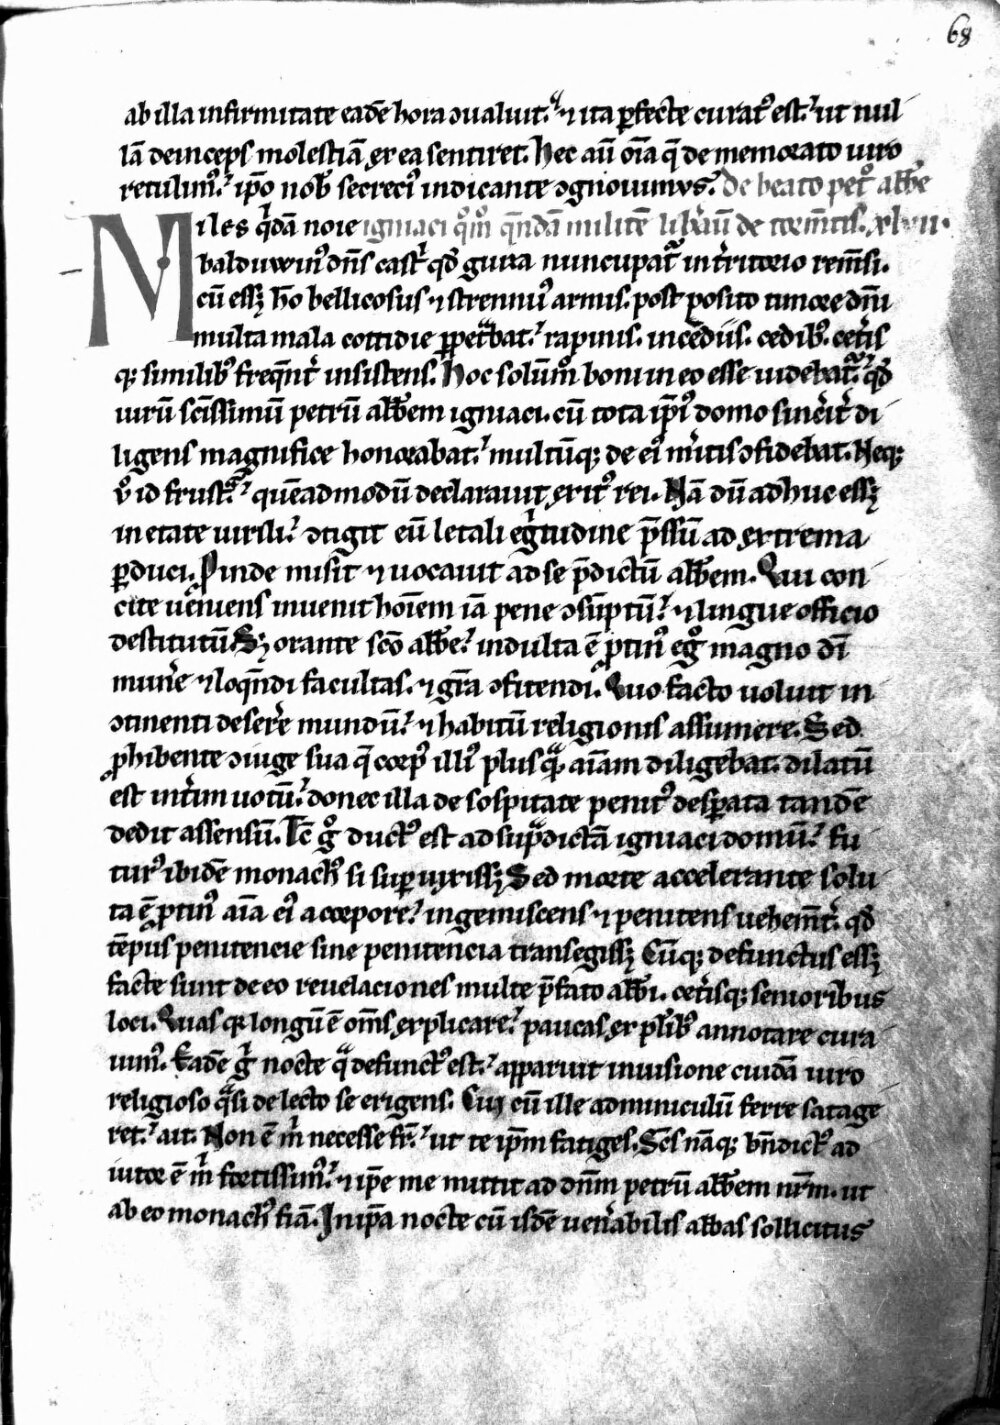 68
ab illa infirmitate eadē hora ↄualuit. ⁊ ita ꝑfecte curatꝰ est. ut nul
lā deinceps molestiā ex ea sentiret. hec aū oīa q̄ de memorato uiro
retulimꝰ. ip̄o nob̄ secreciꝰ indicante ↄgnouimus. De beato pet° abb̄e
Miles q'dā noīe igniaci q°m° q̄ndā militē lib̄auit de tormītis. xlvii.
balduwinꝰ dn̄s castr' qd̄ gura nuncupatᷓ in t'ritorio rem̄si.
cū essꝫ h̄o bellicosus ⁊ strennuꝰ armis. post posito timore dn̄i
multa mala cottidie ꝑpetᷓbat. rapinis. incēdiis. cedibꝰ. cet'is
qꝫ similibꝰ freq̄nt' insistens. Hoc solūm° boni in eo esse uidebatᷓ. qd̄
uirū sc̄issimū petrū abb̄em igniaci. cū tota ip̄iꝰ domo sinc'it' di
ligens magnifice honorabat. multūqꝫ de eiꝰ m'itis ↄfidebat. Neqꝫ
v° id frustᷓ. quēadmodū declarauit exitꝰ rei. Nā dū adhuc essꝫ
in etate uirili. ↄtigit eū letali eg'tudine p̄ssū ad extrema
ꝑduci. Proinde misit ⁊ uocauit ad se p̄dictū abb̄em. Qui con
cite ueniens inuenit hoīem iā pene ↄsūptū. ⁊ lingue officio
destitutū. Sꝫ orante sc̄o abb̄e. indulta ē ꝓtinꝰ eg° magno dī
mun'e ⁊ loq̄ndi facultas. ⁊ gr̄a ↄfitendi. Quo facto uoluit in
ↄtinenti deser'e mundū. ⁊ habitū religionis assumere. Sed
ꝓhibente ↄiuge sua q̄ corpꝰ illiꝰ plus qᷓ aīam diligebat. dilatū
est int'im uotū. donec illa de sospitate penitꝰ desꝑata tandē
dedit assensū. Tc̄ g° ductꝰ est ad supᷓdictā igniaci domū. fu
turꝰ ibidē monachꝰ si superuixissꝫ. Sed morte accelerante solu
ta ē ꝓtinꝰ aīa eiꝰ a corpore. ingemiscens ⁊ penitens uehem̄t'. qd̄
tēpus penitencie sine penitencia transegissꝫ. Cūqꝫ defunctus essꝫ
facte sunt de eo reuelaciones multe p̄fato abb̄i. cet'isqꝫ senioribus
loci. Quas qꝫ longū ē om̄s explicare. paucas ex pl'ibꝰ annotare cura
uimꝰ. Eadē g' nocte qᷓ defunctꝰ est. apparuit in uisione cuidā uiro
religioso qᷓsi de lecto se erigens. Cui cū ille adminiculū ferre satage
ret. ait. Non ē m' necesse fr̄. ut te ip̄m fatiges. Sc̄s nāqꝫ bn̄dictꝰ ad
iutor ē m' fortissimꝰ. ⁊ ip̄e me mittit ad dn̄m petrū abb̄em nr̄m. ut
ab eo monachꝰ fiā. In ip̄a nocte cū isdē uen'abilis abbas sollicitus